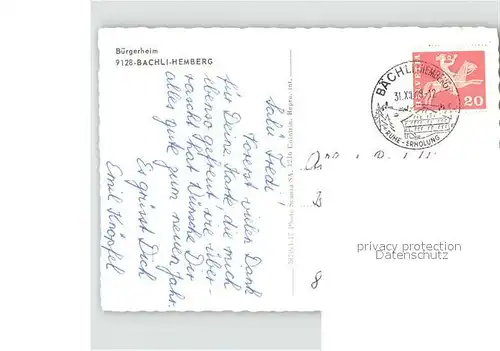 Bürgerheim
9128-BÄCHLI-HEMBERG
Salü Fredi!
Vorerst vielen Dank
für Deine Karte die mich
ebenso gefreut, wie über-
rascht hat. Wünsche Dir
alles gute zum neuen Jahr.
Es grüsst Dich
Emil Knöpfel
Photo 1216 Cointrin
BÄCHLI (HEMBERG)
31.XII.
RUHE - ERHOLUNG
HELVETIA
20
privacy protection
Datenschutz
B
8